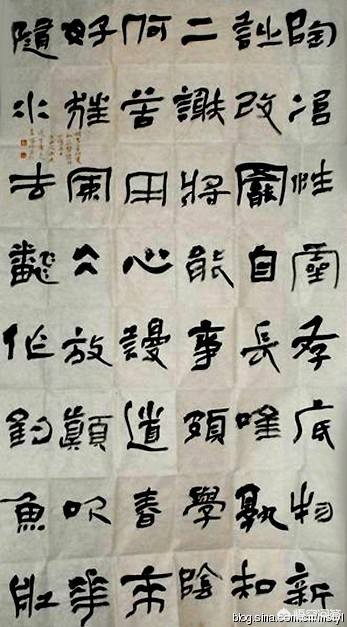 陶冶性靈存底物新
詩改罷自長唫孰知
二謝將能事頗學陰
何苦用心謾道春來
好狂風大放顛吹華
隨水去飜却釣魚舡
悟空问答
blog.sina.com.cn/mstyl